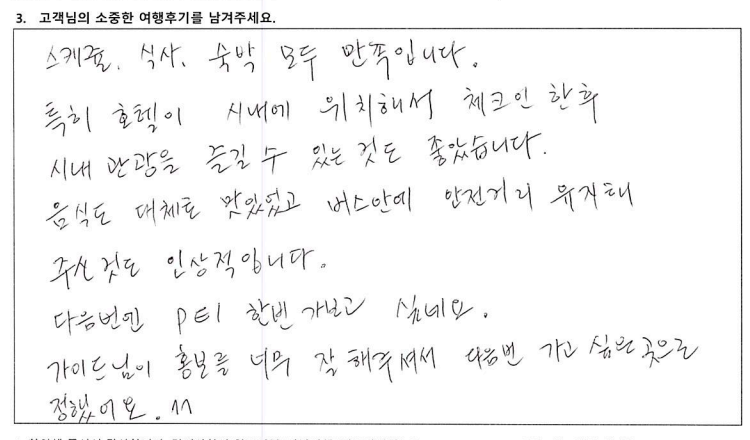 3. 고객님의 소중한 여행후기를 남겨주세요.
스케쥴, 식사, 숙박 모두 만족입니다.
특히 호텔이 시내에 위치해서 체크인 한후
시내 관광을 즐길 수 있는 것도 좋았습니다.
음식도 대체로 맛있었고 버스안에 안전거리 유지해
주신 것도 인상적입니다.
다음번엔 PEI 한번 가보고 싶네요.
가이드님이 홍보를 너무 잘 해주셔서 다음번 가고 싶은 곳으로
정했어요. ^^